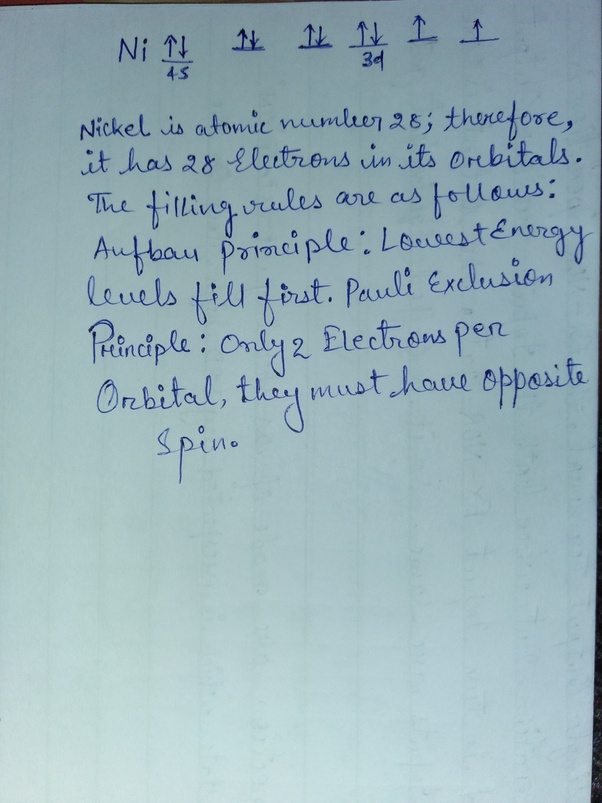 Ni ↑↓ ↑↓ ↑↓ ↑↓ ↑ ↑
4S 3d
Nickel is atomic number 28; therefore,
it has 28 Electrons in its Orbitals.
The filling rules are as follows:
Aufbau Principle: Lowest Energy
levels fill first. Pauli Exclusion
Principle: Only 2 Electrons per
Orbital, they must have opposite
Spin.